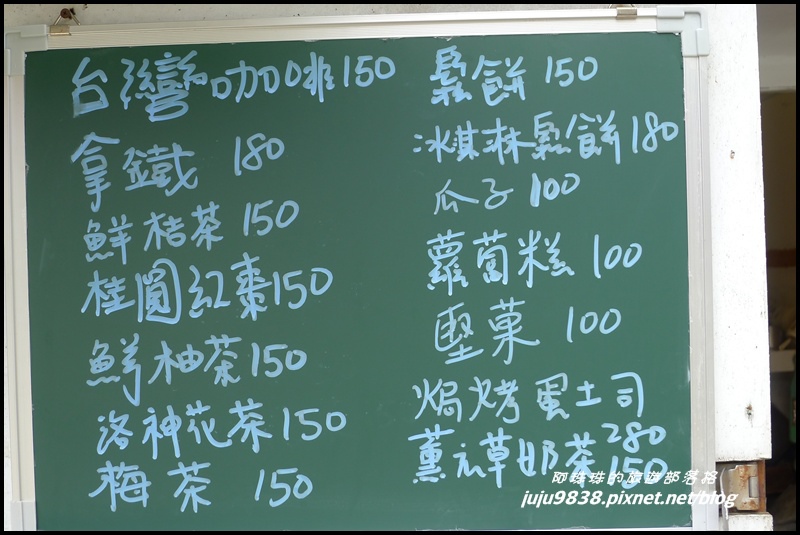 台灣咖啡150
拿鐵 180
鮮桔茶 150
桂圓紅棗150
鮮柚茶150
洛神花茶150
梅茶 150
鬆餅 150
冰淇淋鬆餅180
瓜子 100
蘿蔔糕 100
堅菓 100
焗烤蛋土司
280
薰衣草奶茶150
阿珠珠的旅遊部落格
juju9838.pixnet.net/blog